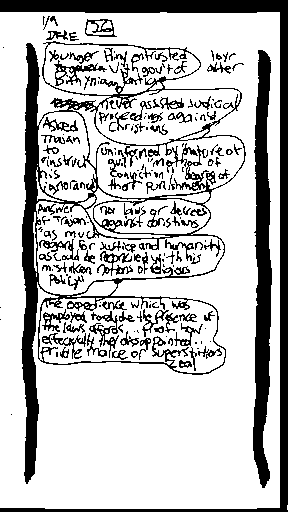 1/9
26
Younger Pliny entrusted
with gov't of
Bithynia
10 yr
after
never assisted Judicial
Proceedings against
Christians
Asked
Trajan
to
instruct
his
ignorance
uninformed by "nature of
guilt" "method of
conviction" "degree of
their punishment"
no laws or decrees
against christians
Answer
of Trajan
"as much
regard for Justice and humanity
as could be reconciled with his
mistaken notions of religious
Policy"
The expedience which was
employed to elude the Presence of
the laws affords... Proof how
effectually they disappointed...
Private malice or superstitious
zeal